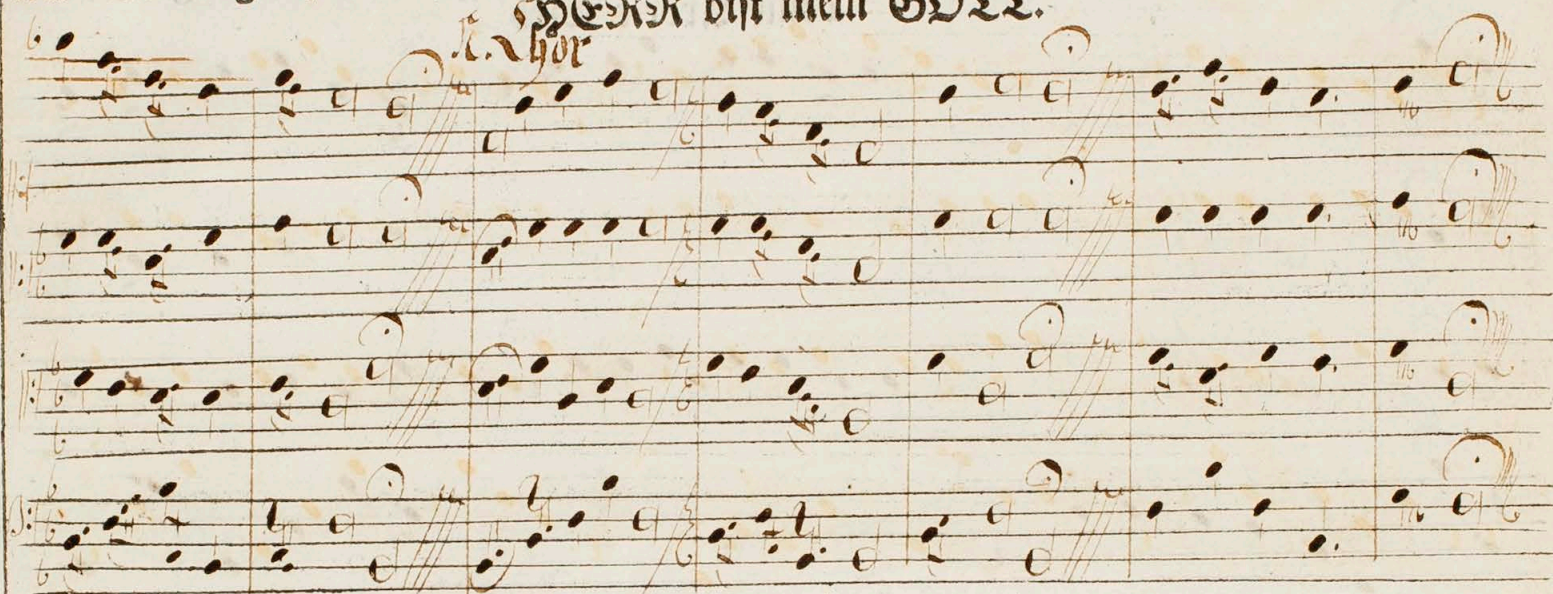 HERR bist mein GOTT.
Chor